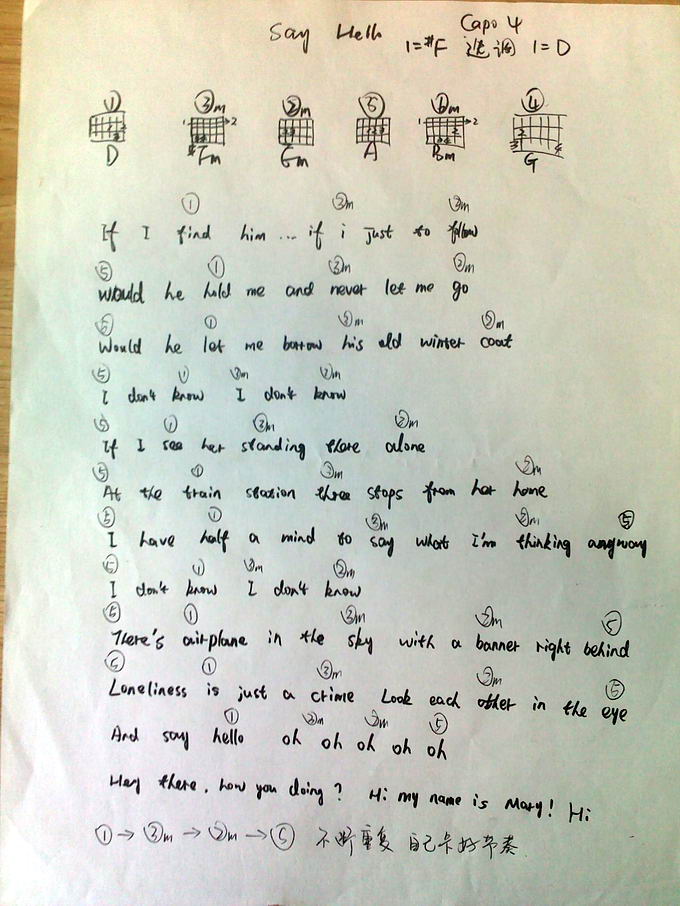 Say Hello
Capo 4
1=#F 选调 1=D
① ③m ②m ⑤ ⑥m ④
1 2 1 2
D #Fm Em A Bm G
① ③m ②m
If I find him ... if i just to follow
⑤ ① ③m ②m
Would he hold me and never let me go
⑤ ① ③m ②m
Would he let me borrow his old winter coat
⑤ ① ③m ②m
I don't know I don't know
⑤ ① ③m ②m
If I see her standing there alone
⑤ ① ③m ②m
At the train station three stops from her home
⑤ ① ③m ②m ⑤
I have half a mind to say what I'm thinking anyway
⑤ ① ③m ②m
I don't know I don't know
⑤ ① ③m ②m ⑤
There's airplane in the sky with a banner right behind
⑤ ① ③m ②m ⑤
Loneliness is just a crime Look each other in the eye
① ③m ②m ⑤
And say hello oh oh oh oh oh
Hey there, how you doing? Hi my name is Mary! Hi
① → ③m → ②m → ⑤ 不断重复 自己卡好节奏